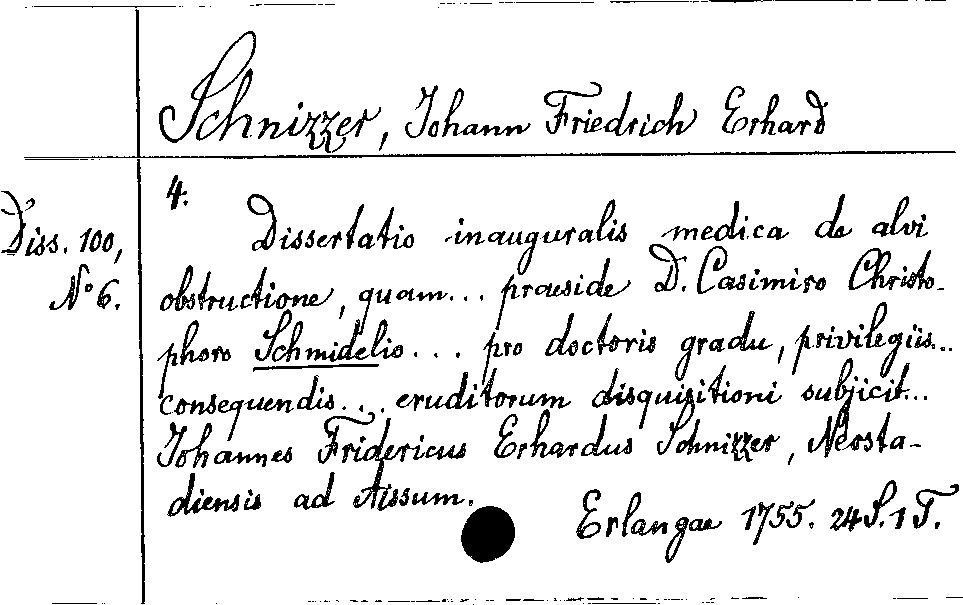 Schnizzer, Johann Friedrich Erhard
4.
Diss. 100,
No 6.
Dissertatio inauguralis medica de alvi
obstructione, quam... praeside D. Casimiro Christo-
phoro Schmidelio... pro doctoris gradu, privilegiis...
consequendis... eruditorum disquisitioni subjicit...
Johannes Fridericus Erhardus Schnizzer, Neosta-
diensis ad Aissum.
Erlangae 1755. 24 S. 1 T.